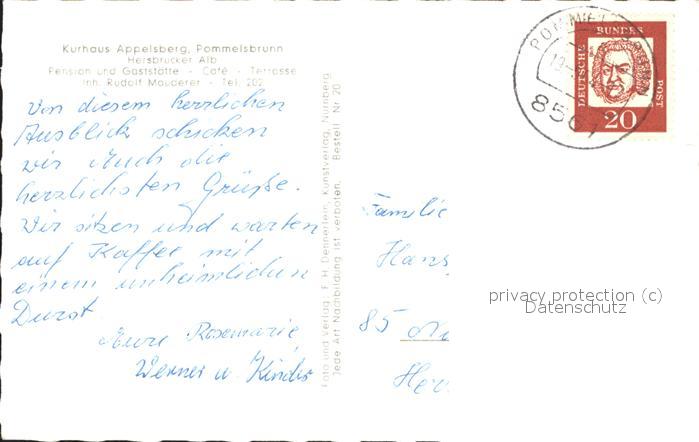 Kurhaus Appelsberg, Pommelsbrunn
Hersbrucker Alb
Pension und Gaststätte - Café - Terrasse
Inh. Rudolf Mauderer - Tel. 202
Von diesem herrlichen
Ausblick schicken
wir Euch die
herzlichsten Grüße.
Wir sitzen und warten
auf Kaffee mit
einem unheimlichen
Durst.
Eure Rosemarie,
Werner u. Kinder
Foto und Verlag: F. H. Dennerlein, Kunstverlag, Nürnberg
Jede Art Nachbildung ist verboten. Bestell Nr 20
DEUTSCHE BUNDES POST
20
8561
Familie
Hans
85
privacy protection (c)
Datenschutz